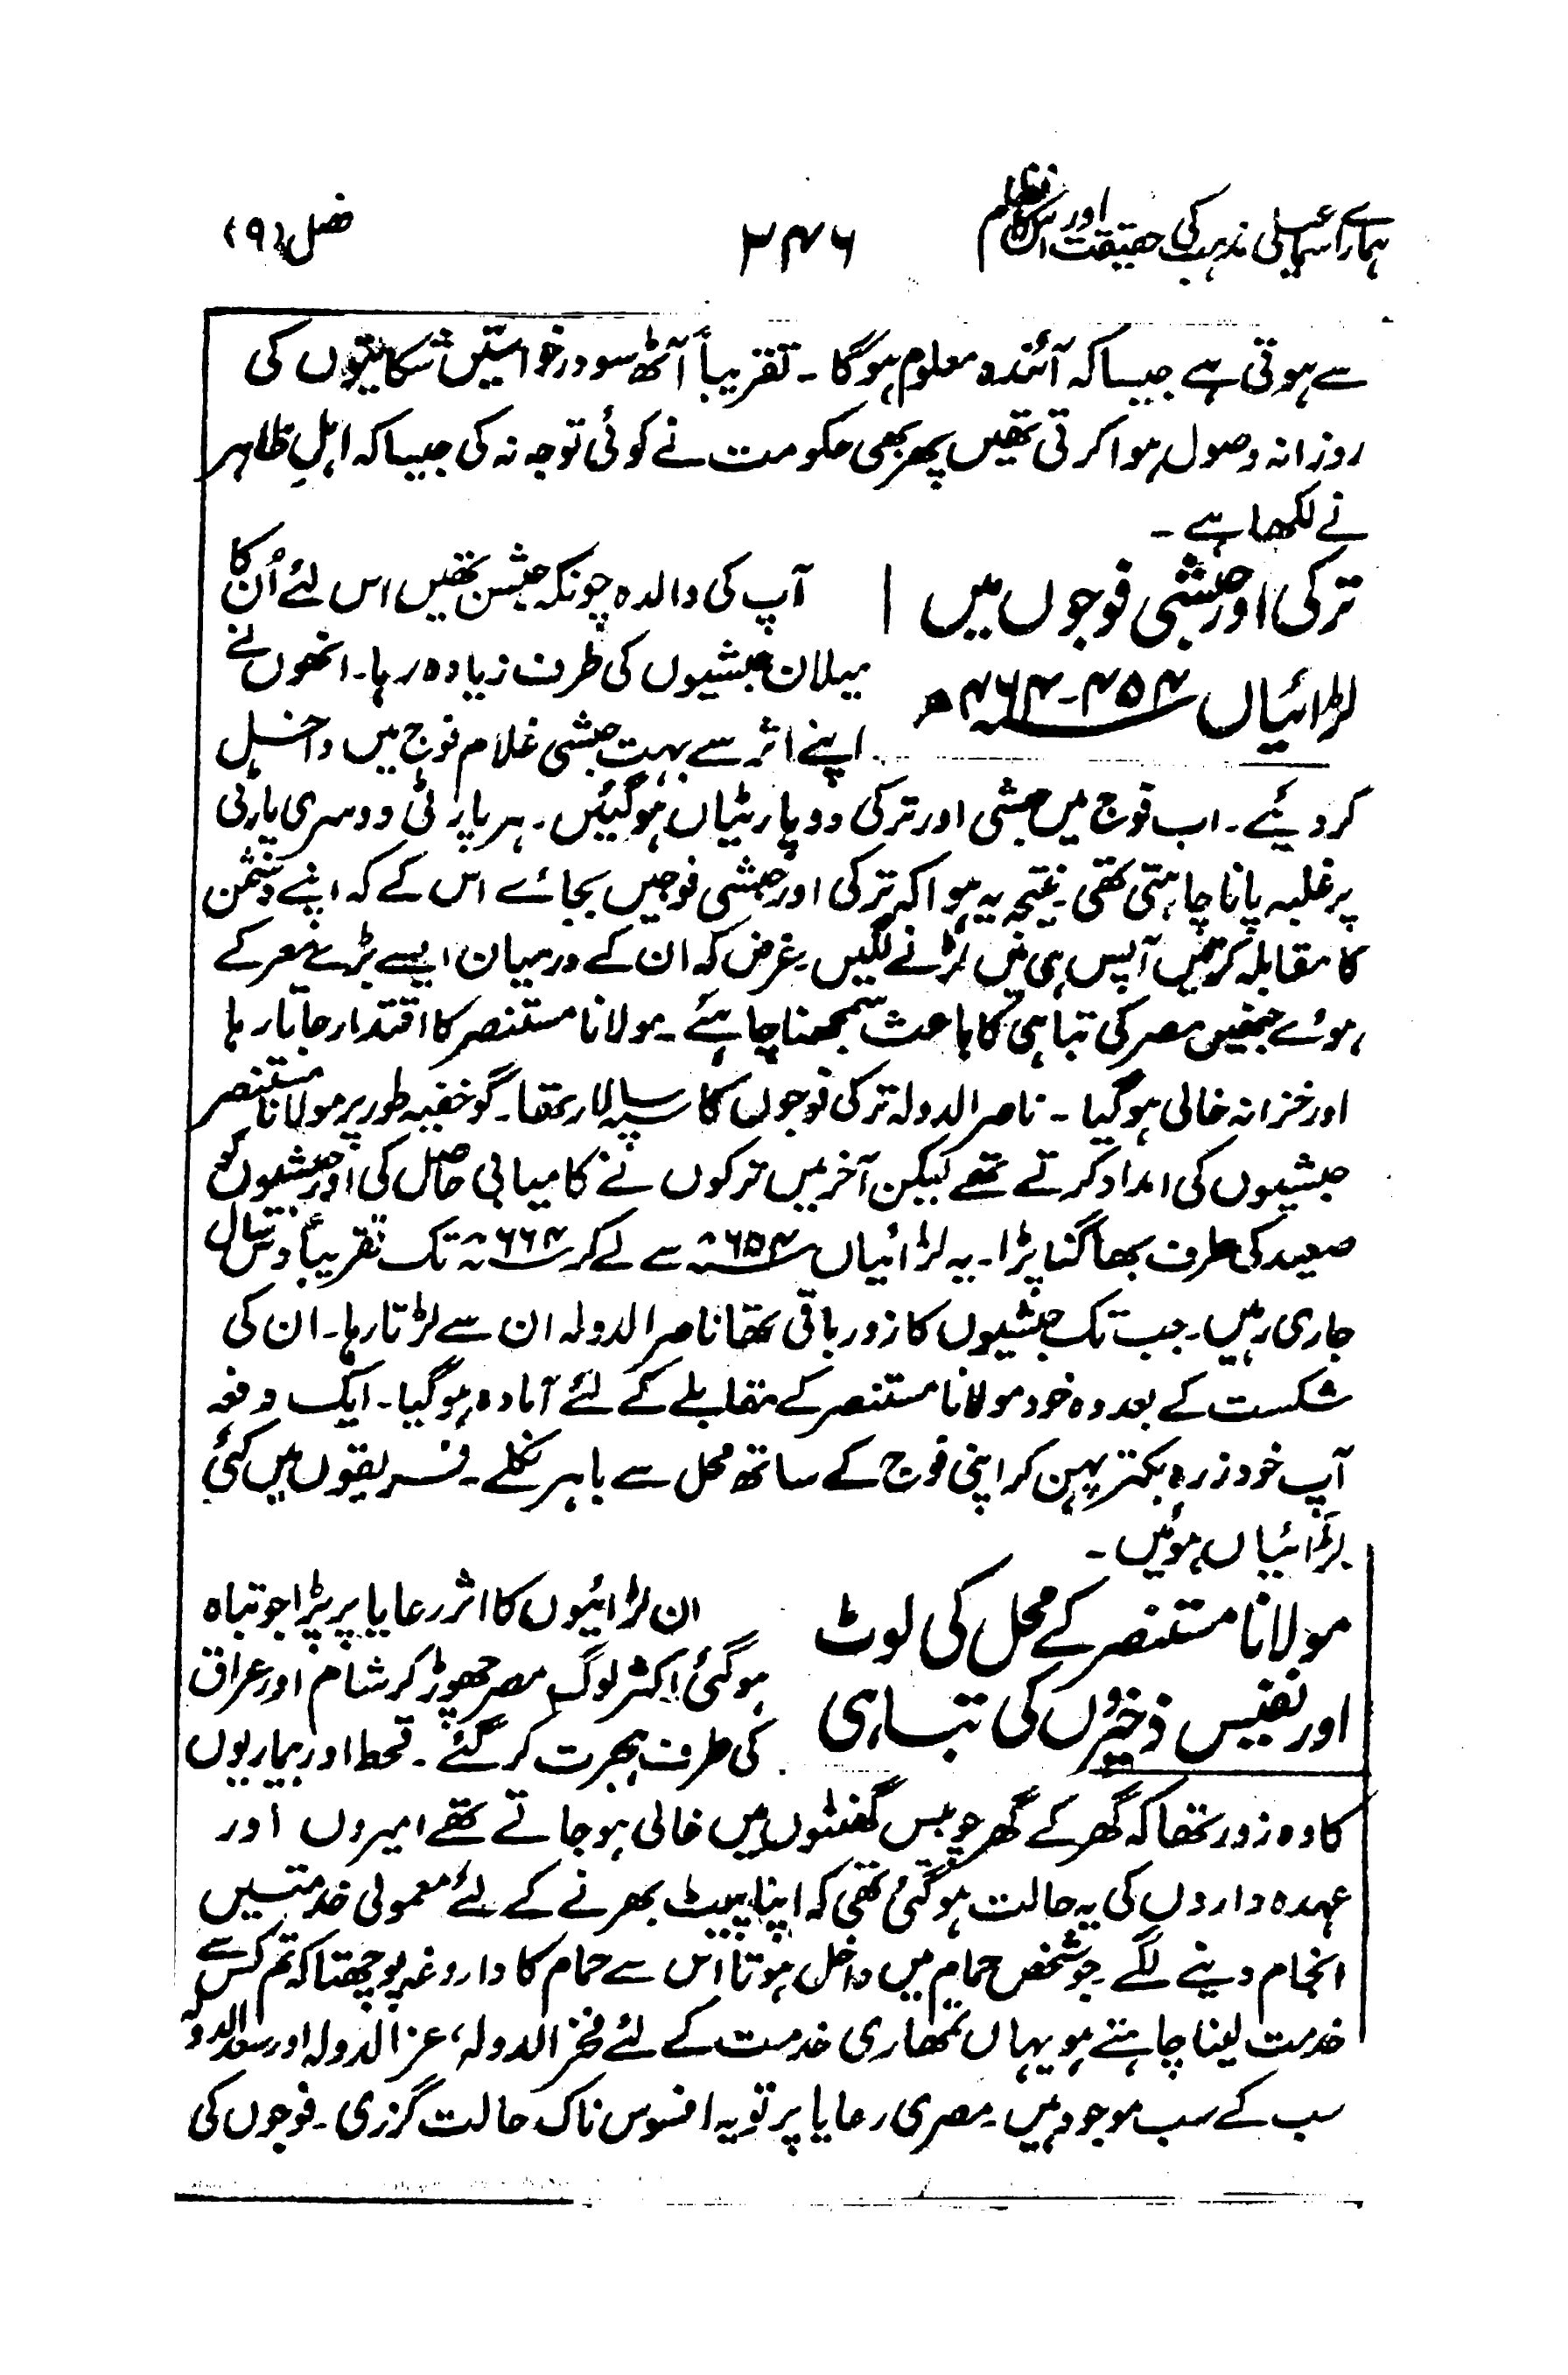 ہمارے اسماعیلی مذہب کی حقیقت اور اس کا نظام ۲۴۶ فصل (۹)
سے ہوتی ہے جیسا کہ آئندہ معلوم ہوگا ۔ تقریباً آٹھ سو درخواستیں شکایتوں کی
روزانہ وصول ہوا کرتی تھیں پھر بھی حکومت نے کوئی توجہ نہ کی جیسا کہ اہلِ ظاہر
نے لکھا ہے ۔
ترکی اور حبشی فوجوں میں
لڑائیاں ۴۵۴-۴۶۴ھ
آپ کی والدہ چونکہ حبشن تھیں اس لئے اُن کا
میلان حبشیوں کی طرف زیادہ رہا۔ انھوں نے
اپنے اثر سے بہت حبشی غلام فوج میں داخل
کردیئے ۔ اب فوج میں حبشی اور ترکی دو پارٹیاں ہوگئیں ۔ ہر پارٹی دوسری پارٹی
پر غلبہ پانا چاہتی تھی ۔ نتیجہ یہ ہوا کہ ترکی اور حبشی فوجیں بجائے اس کے کہ اپنے دشمن
کا مقابلہ کرتیں آپس ہی میں لڑنے لگیں ۔ غرض کہ ان کے درمیان ایسے بڑے معرکے
ہوئے جنھیں مصر کی تباہی کا باعث سمجھنا چاہئے ۔ مولانا مستنصر کا اقتدار جاتا رہا
اور خزانہ خالی ہوگیا ۔ ناصر الدولہ ترکی فوجوں کا سپہ سالار تھا ۔ گو خفیہ طور پر مولانا مستنصر
حبشیوں کی امداد کرتے تھے لیکن آخر میں ترکوں نے کامیابی حاصل کی اور حبشیوں کو
صعید کی طرف بھاگنا پڑا ۔ یہ لڑائیاں سے لے کر تک تقریباً دس سال
جاری رہیں ۔ جب تک حبشیوں کا زور باقی تھا ناصر الدولہ ان سے لڑتا رہا ۔ ان کی
شکست کے بعد وہ خود مولانا مستنصر کے مقابلے کے لئے آمادہ ہوگیا ۔ ایک دفعہ
آپ خود زرہ بکتر پہن کر اپنی فوج کے ساتھ محل سے باہر نکلے ۔ فریقوں میں کئی
لڑائیاں ہوئیں ۔
مولانا مستنصر کے محل کی لوٹ
اور نفیس ذخیروں کی تباہی
ان لڑائیوں کا اثر رعایا پر پڑا جو تباہ
ہوگئی ۔ اکثر لوگ مصر چھوڑ کر شام اور عراق
کی طرف ہجرت کر گئے ۔ قحط اور بیماریوں
کا وہ زور تھا کہ گھر کے گھر چوبیس گھنٹوں میں خالی ہو جاتے تھے امیروں اور
عہدہ داروں کی یہ حالت ہوگئی تھی کہ اپنا پیٹ بھرنے کے لئے معمولی خدمتیں
انجام دینے لگے ۔ جو شخص حمام میں داخل ہوتا اس سے حمام کا داروغہ پوچھتا کہ تم کس سے
خدمت لینا چاہتے ہو یہاں تمھاری خدمت کے لئے فخر الدولہ، عز الدولہ اور سعد الدولہ
سب کے سب موجود ہیں ۔ مصری رعایا پر تو یہ افسوس ناک حالت گزری ۔ فوجوں کی